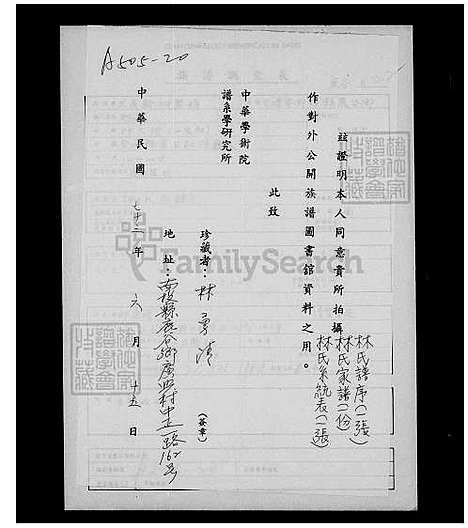 A505-20
茲證明本人同意貴所拍攝
林氏譜序(一張)
林氏家譜(一份)
林氏系統表(一張)
作對外公開族譜圖書館資料之用。
此致
中華學術院
譜系學研究所
珍藏者：林
(簽章)
地址：南投縣鹿谷鄉廣興村中正一路162號
中華民國七十二年六月十五日
FamilySearch